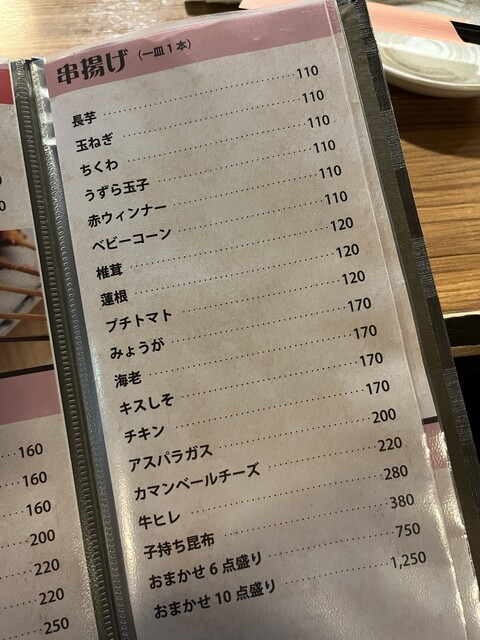 串揚げ（一皿1本）
長芋 110
玉ねぎ 110
ちくわ 110
うずら玉子 110
赤ウィンナー 110
ベビーコーン 110
椎茸 120
蓮根 120
プチトマト 120
みょうが 170
海老 170
キスしそ 170
チキン 170
アスパラガス 200
カマンベールチーズ 220
牛ヒレ 280
子持ち昆布 380
おまかせ6点盛り 750
おまかせ10点盛り 1,250
160
160
160
200
220
220
250